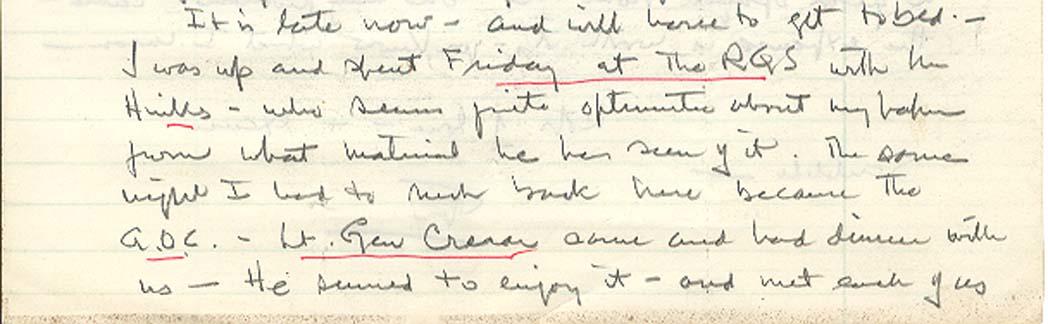 It is late now - and will have to get to bed. -
I was up and spent Friday at the RGS with Mr
Hinks - who seems quite optimistic about my paper
from what material he has seen of it. The same
night I had to rush back here because the
G.O.C. - Lt. Gen Crerar came and had dinner with
us - He seemed to enjoy it - and met each of us